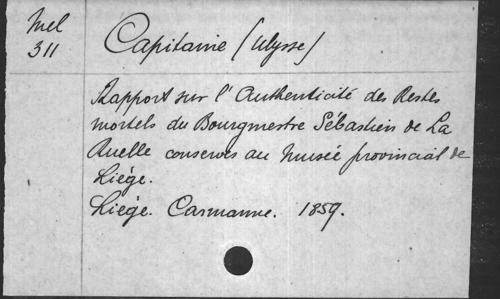 Mel
311
Capitaine (Ulysse)
Rapport sur l'Authenticité des Restes
mortels du Bourgmestre Sébastien de La
Ruelle conservés au Musée provincial de
Liége.
Liége. Carmanne. 1859.